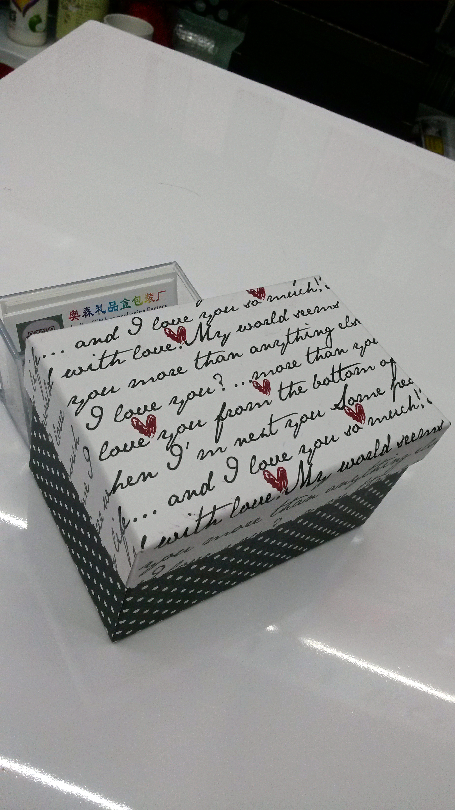 奥森礼品盒包装厂
... and I love you so much!
with love. My world seems
you more than anything els
I love you? ...more than you
I love you from the bottom of
hen I'm next you Some
life... and I love you so much!
I with love. My world seems
you more than anything